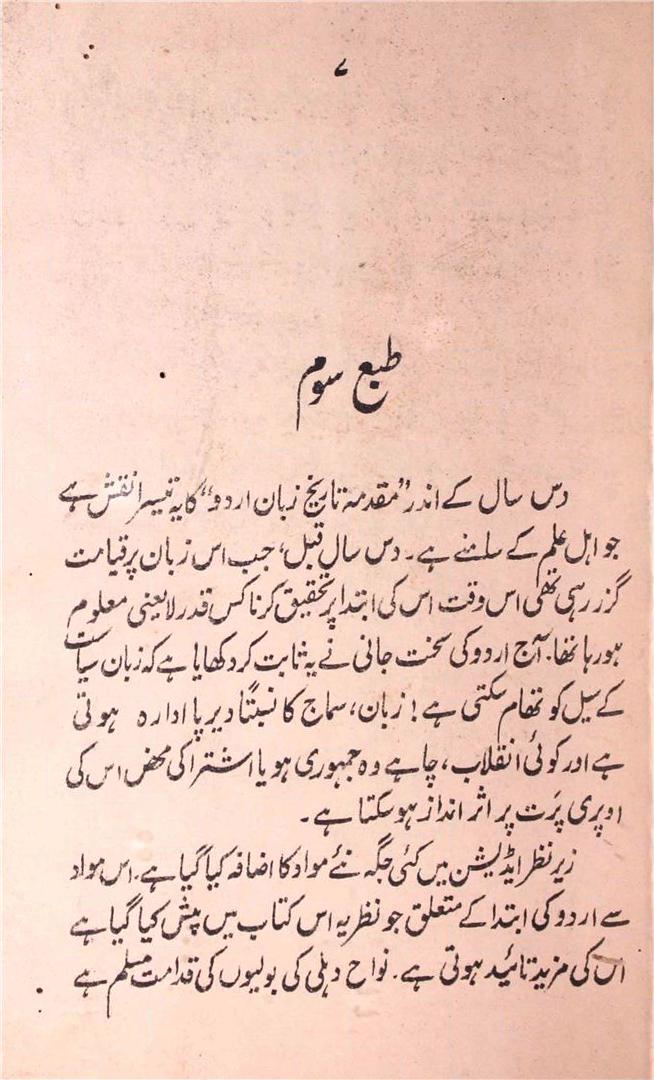 ۷
طبع سوم
دس سال کے اندر ”مقدمہ تاریخ زبان اردو“ کا یہ تیسرا نقش ہے
جو اہل علم کے سامنے ہے۔ دس سال قبل، جب اس زبان پر قیامت
گزر رہی تھی اس وقت اس کی ابتدا پر تحقیق کرنا کس قدر لایعنی معلوم
ہو رہا تھا۔ آج اردو کی سخت جانی نے یہ ثابت کر دکھایا ہے کہ زبان سیاست
کے سیل کو تھام سکتی ہے! زبان، سماج کا نسبتاً دیرپا ادارہ ہوتی
ہے اور کوئی انقلاب، چاہے وہ جمہوری ہو یا اشتراکی محض اس کی
اوپری پرَت پر اثر انداز ہو سکتا ہے۔
زیر نظر ایڈیشن میں کئی جگہ نئے مواد کا اضافہ کیا گیا ہے۔ اس مواد
سے اردو کی ابتدا کے متعلق جو نظریہ اس کتاب میں پیش کیا گیا ہے
اس کی مزید تائید ہوتی ہے۔ نواح دہلی کی بولیوں کی قدامت مسلم ہے